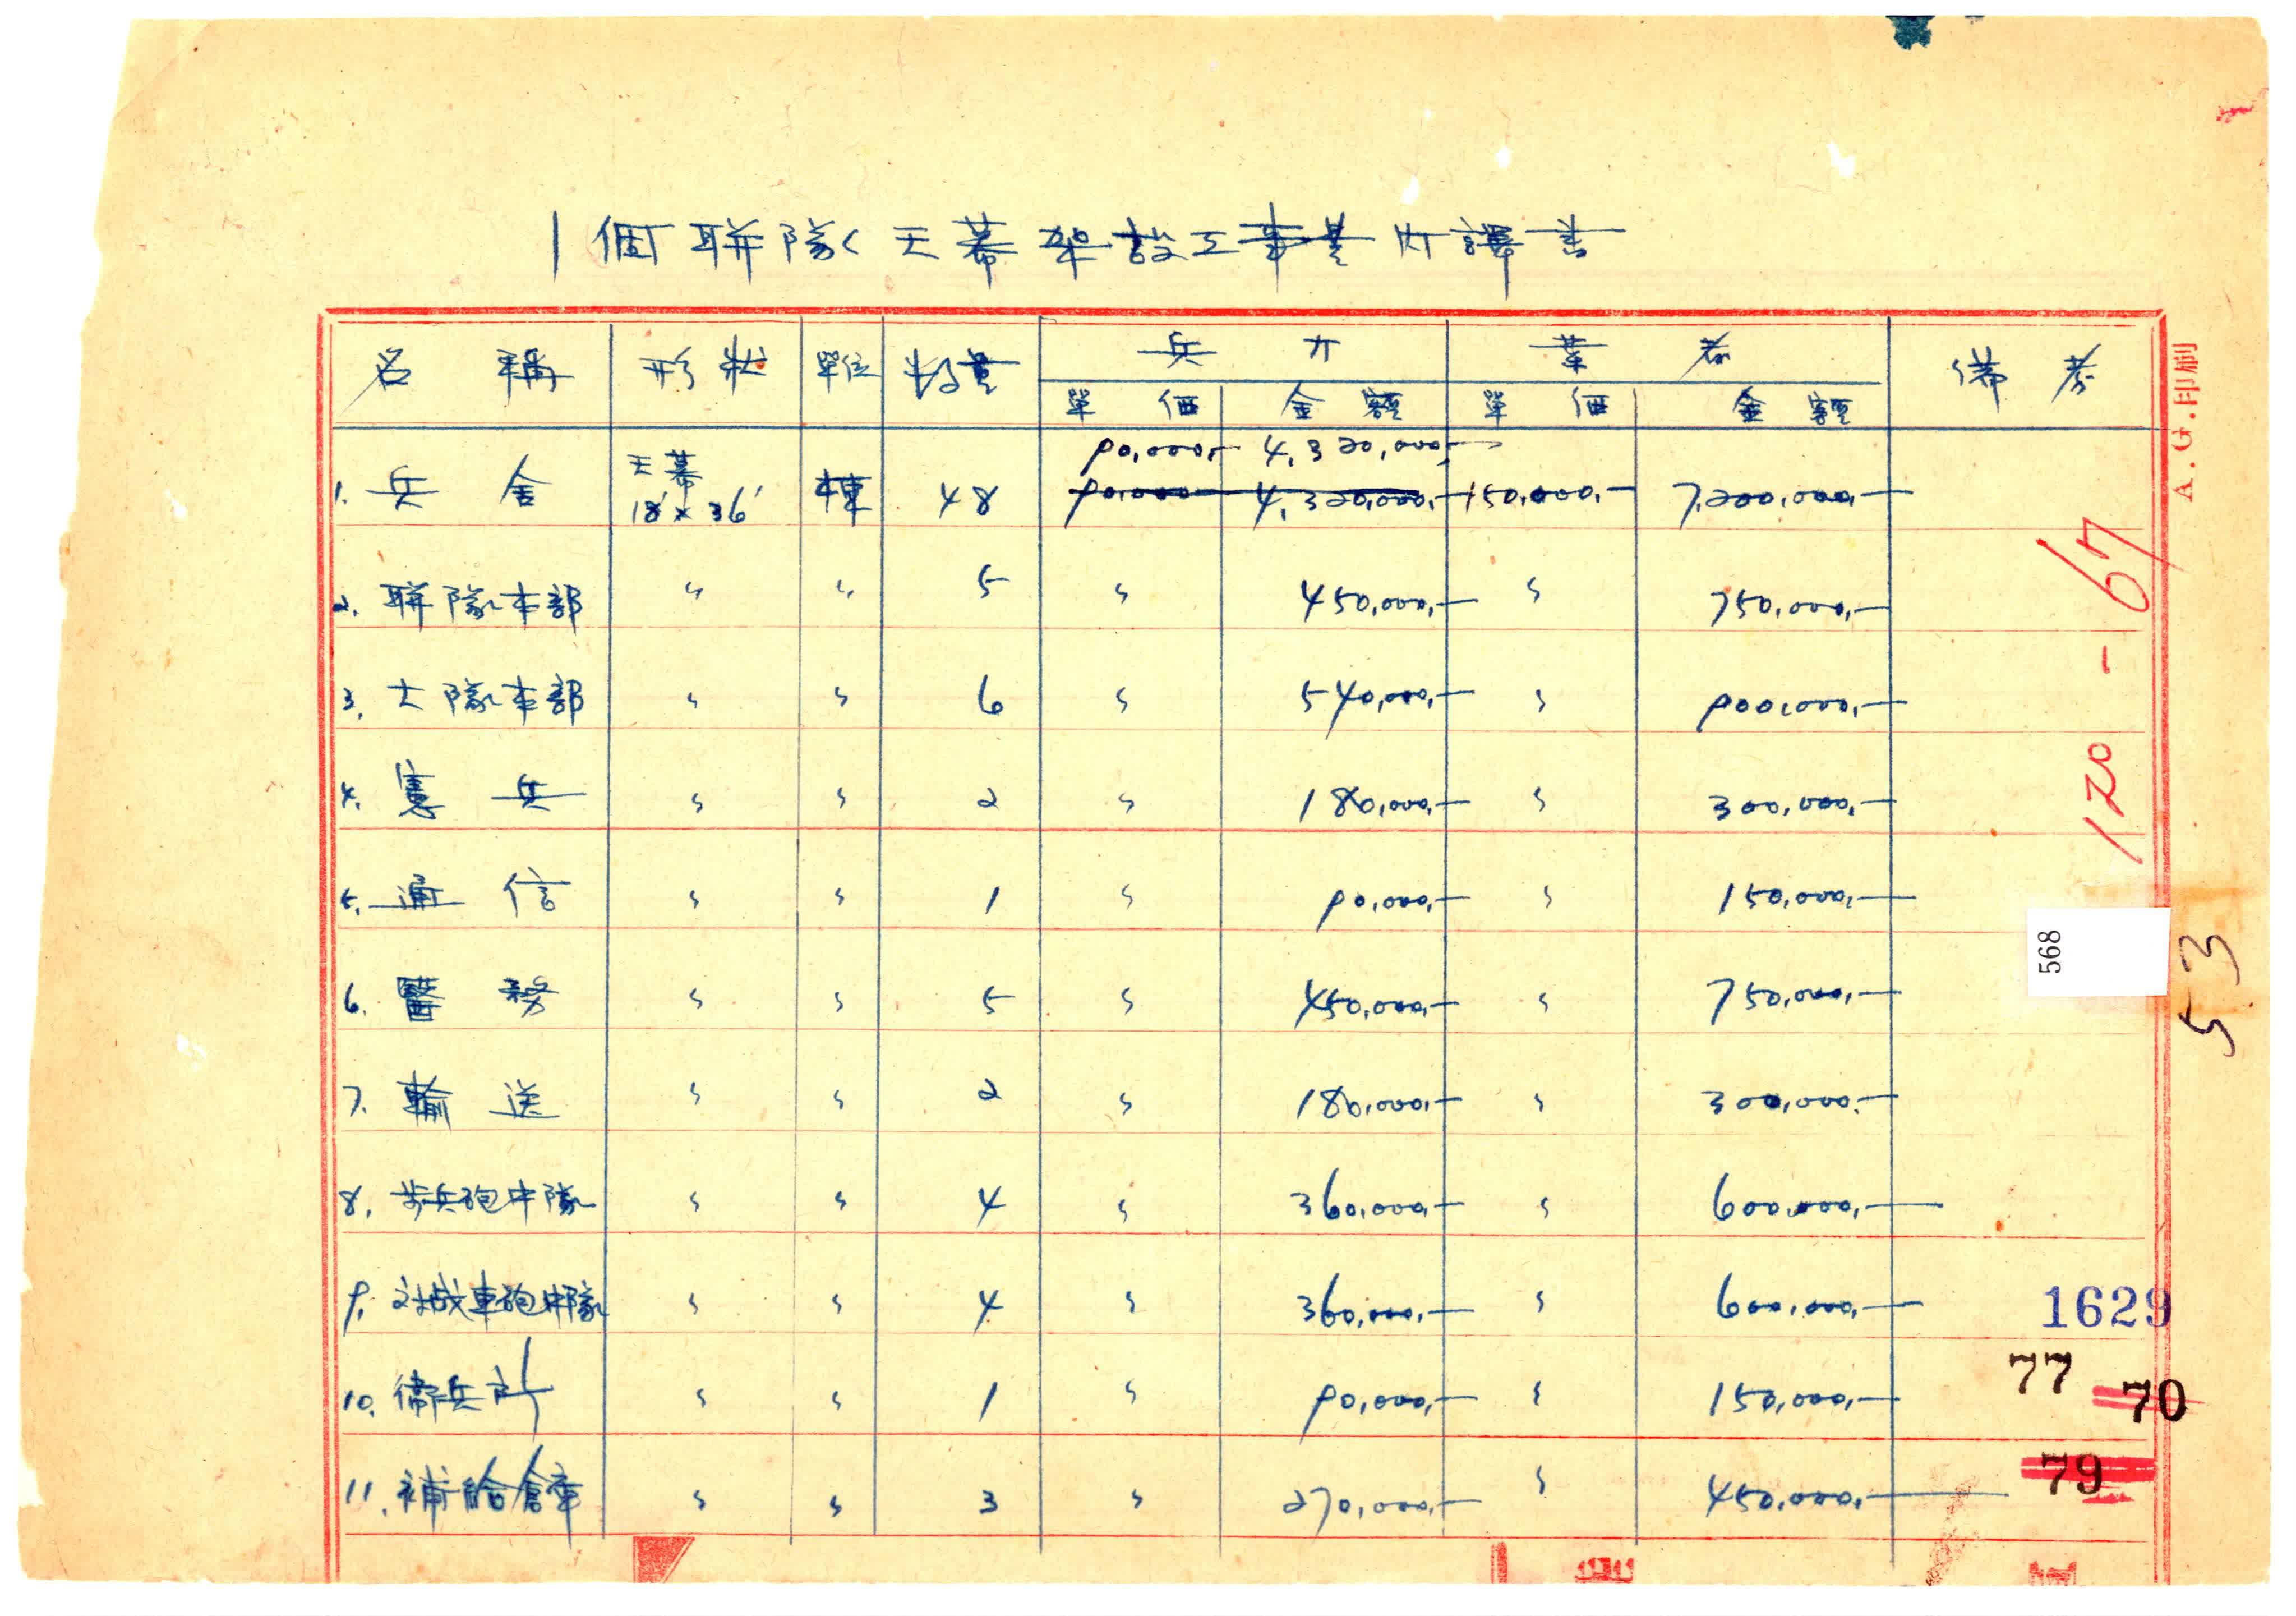 1個聯隊 天幕架設工事費內譯書
名稱 形狀 單位 数量 兵力 業者 備考
單価 金額 單価 金額
90,000,— 4,320,000,—
1. 兵舍 天幕 18'×36' 棟 48 90,000 4,320,000,— 150,000,— 7,200,000,—
2. 聯隊本部 〃 〃 5 〃 450,000,— 〃 750,000,—
3. 大隊本部 〃 〃 6 〃 540,000,— 〃 900,000,—
4. 憲兵 〃 〃 2 〃 180,000,— 〃 300,000,—
5. 通信 〃 〃 1 〃 90,000,— 〃 150,000,—
6. 醫務 〃 〃 5 〃 450,000,— 〃 750,000,—
7. 輸送 〃 〃 2 〃 180,000,— 〃 300,000,—
8. 步兵砲中隊 〃 〃 4 〃 360,000,— 〃 600,000,—
9. 対战車砲中隊 〃 〃 4 〃 360,000,— 〃 600,000,—
10. 衛兵所 〃 〃 1 〃 90,000,— 〃 150,000,—
11. 補給倉庫 〃 〃 3 〃 270,000,— 〃 450,000,—
A.G.印刷
120-67
568
53
1629
77
70
79